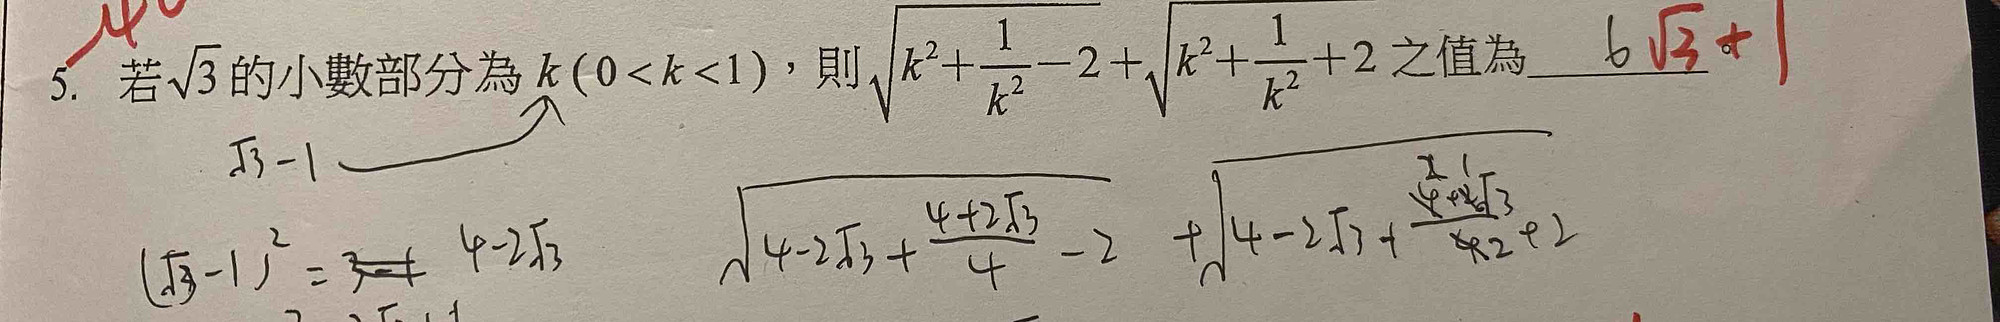 5. 若√3的小數部分為 k (0<k<1)，則√(k²+1/k²−2)+√(k²+1/k²+2) 之值為 6 √3+1
√3-1
(√3-1)² = 4-2√3 √(4-2√3+(4+2√3)/4-2) +√(4-2√3+